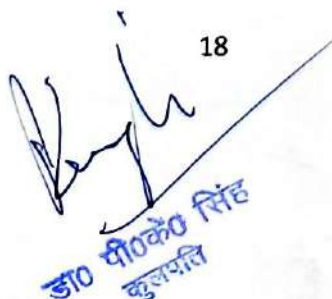 18
डा० पी०के० सिंह
कुलपति